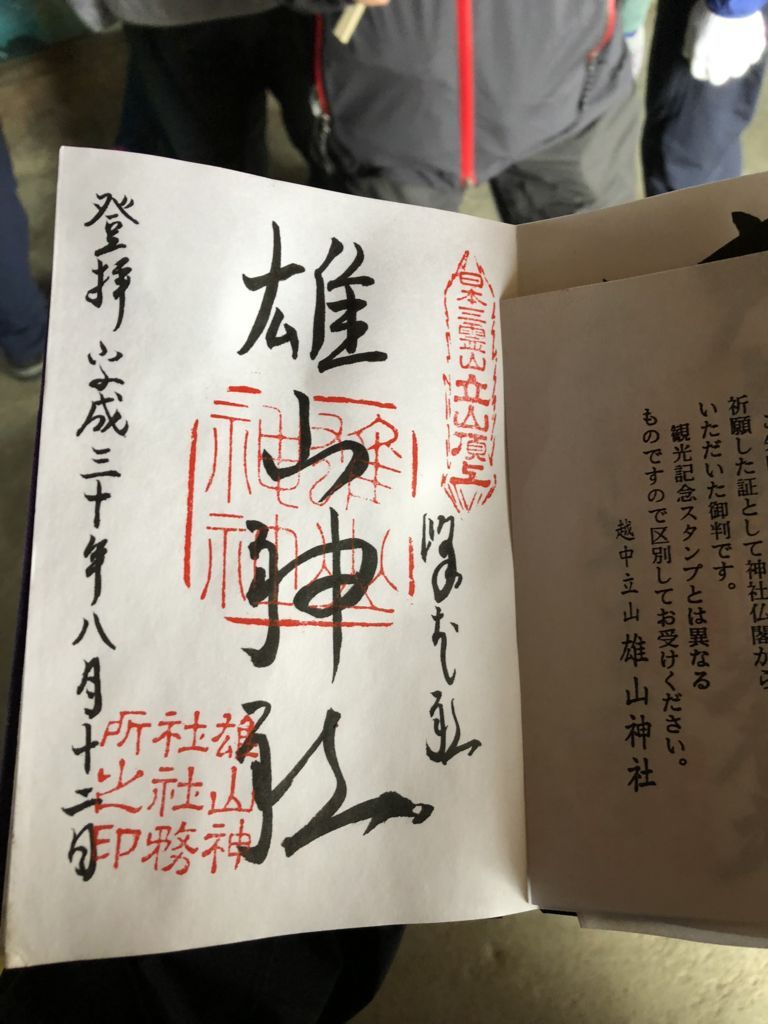 祈願した証として神社仏閣から
いただいた御判です。
観光記念スタンプとは異なる
ものですので区別してお受けください。
越中立山 雄山神社
日本三霊山立山頂上
峰本社
雄山神社
雄山
神社
雄山神
社社務
所之印
登拝 平成三十年八月十二日